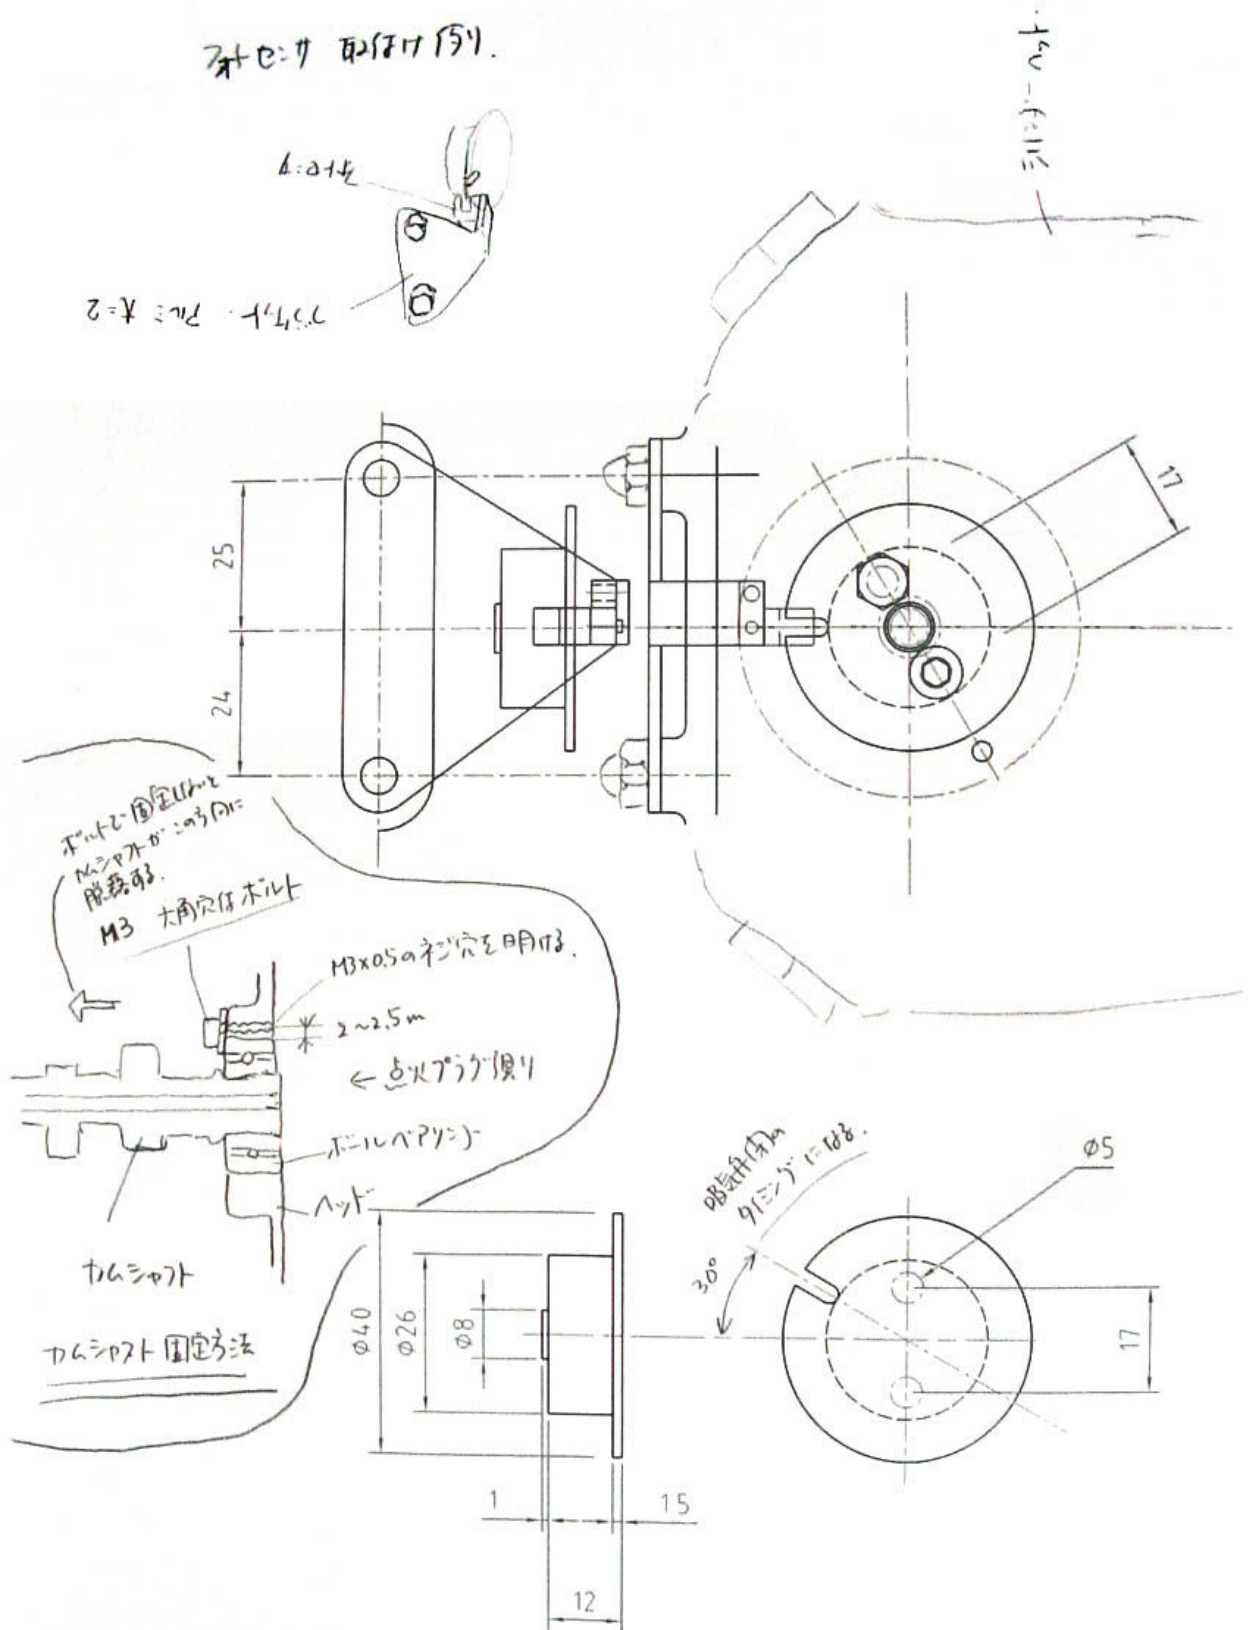 フォトセンサ 取付け例.
フォトセンサ
ブラケット. アルミ t=2
シリンダーヘッド.
17
25
24
ボルトで固定しないと
カムシャフトがこの方向に
脱落する.
M3 六角穴付ボルト
M3×0.5のネジ穴を明ける.
2~2.5m
← 点火プラグ側
ボールベアリング
ヘッド
カムシャフト
カムシャフト固定方法
吸気弁閉の
タイミングになる.
30°
Ø5
17
Ø40
Ø26
Ø8
1
15
12